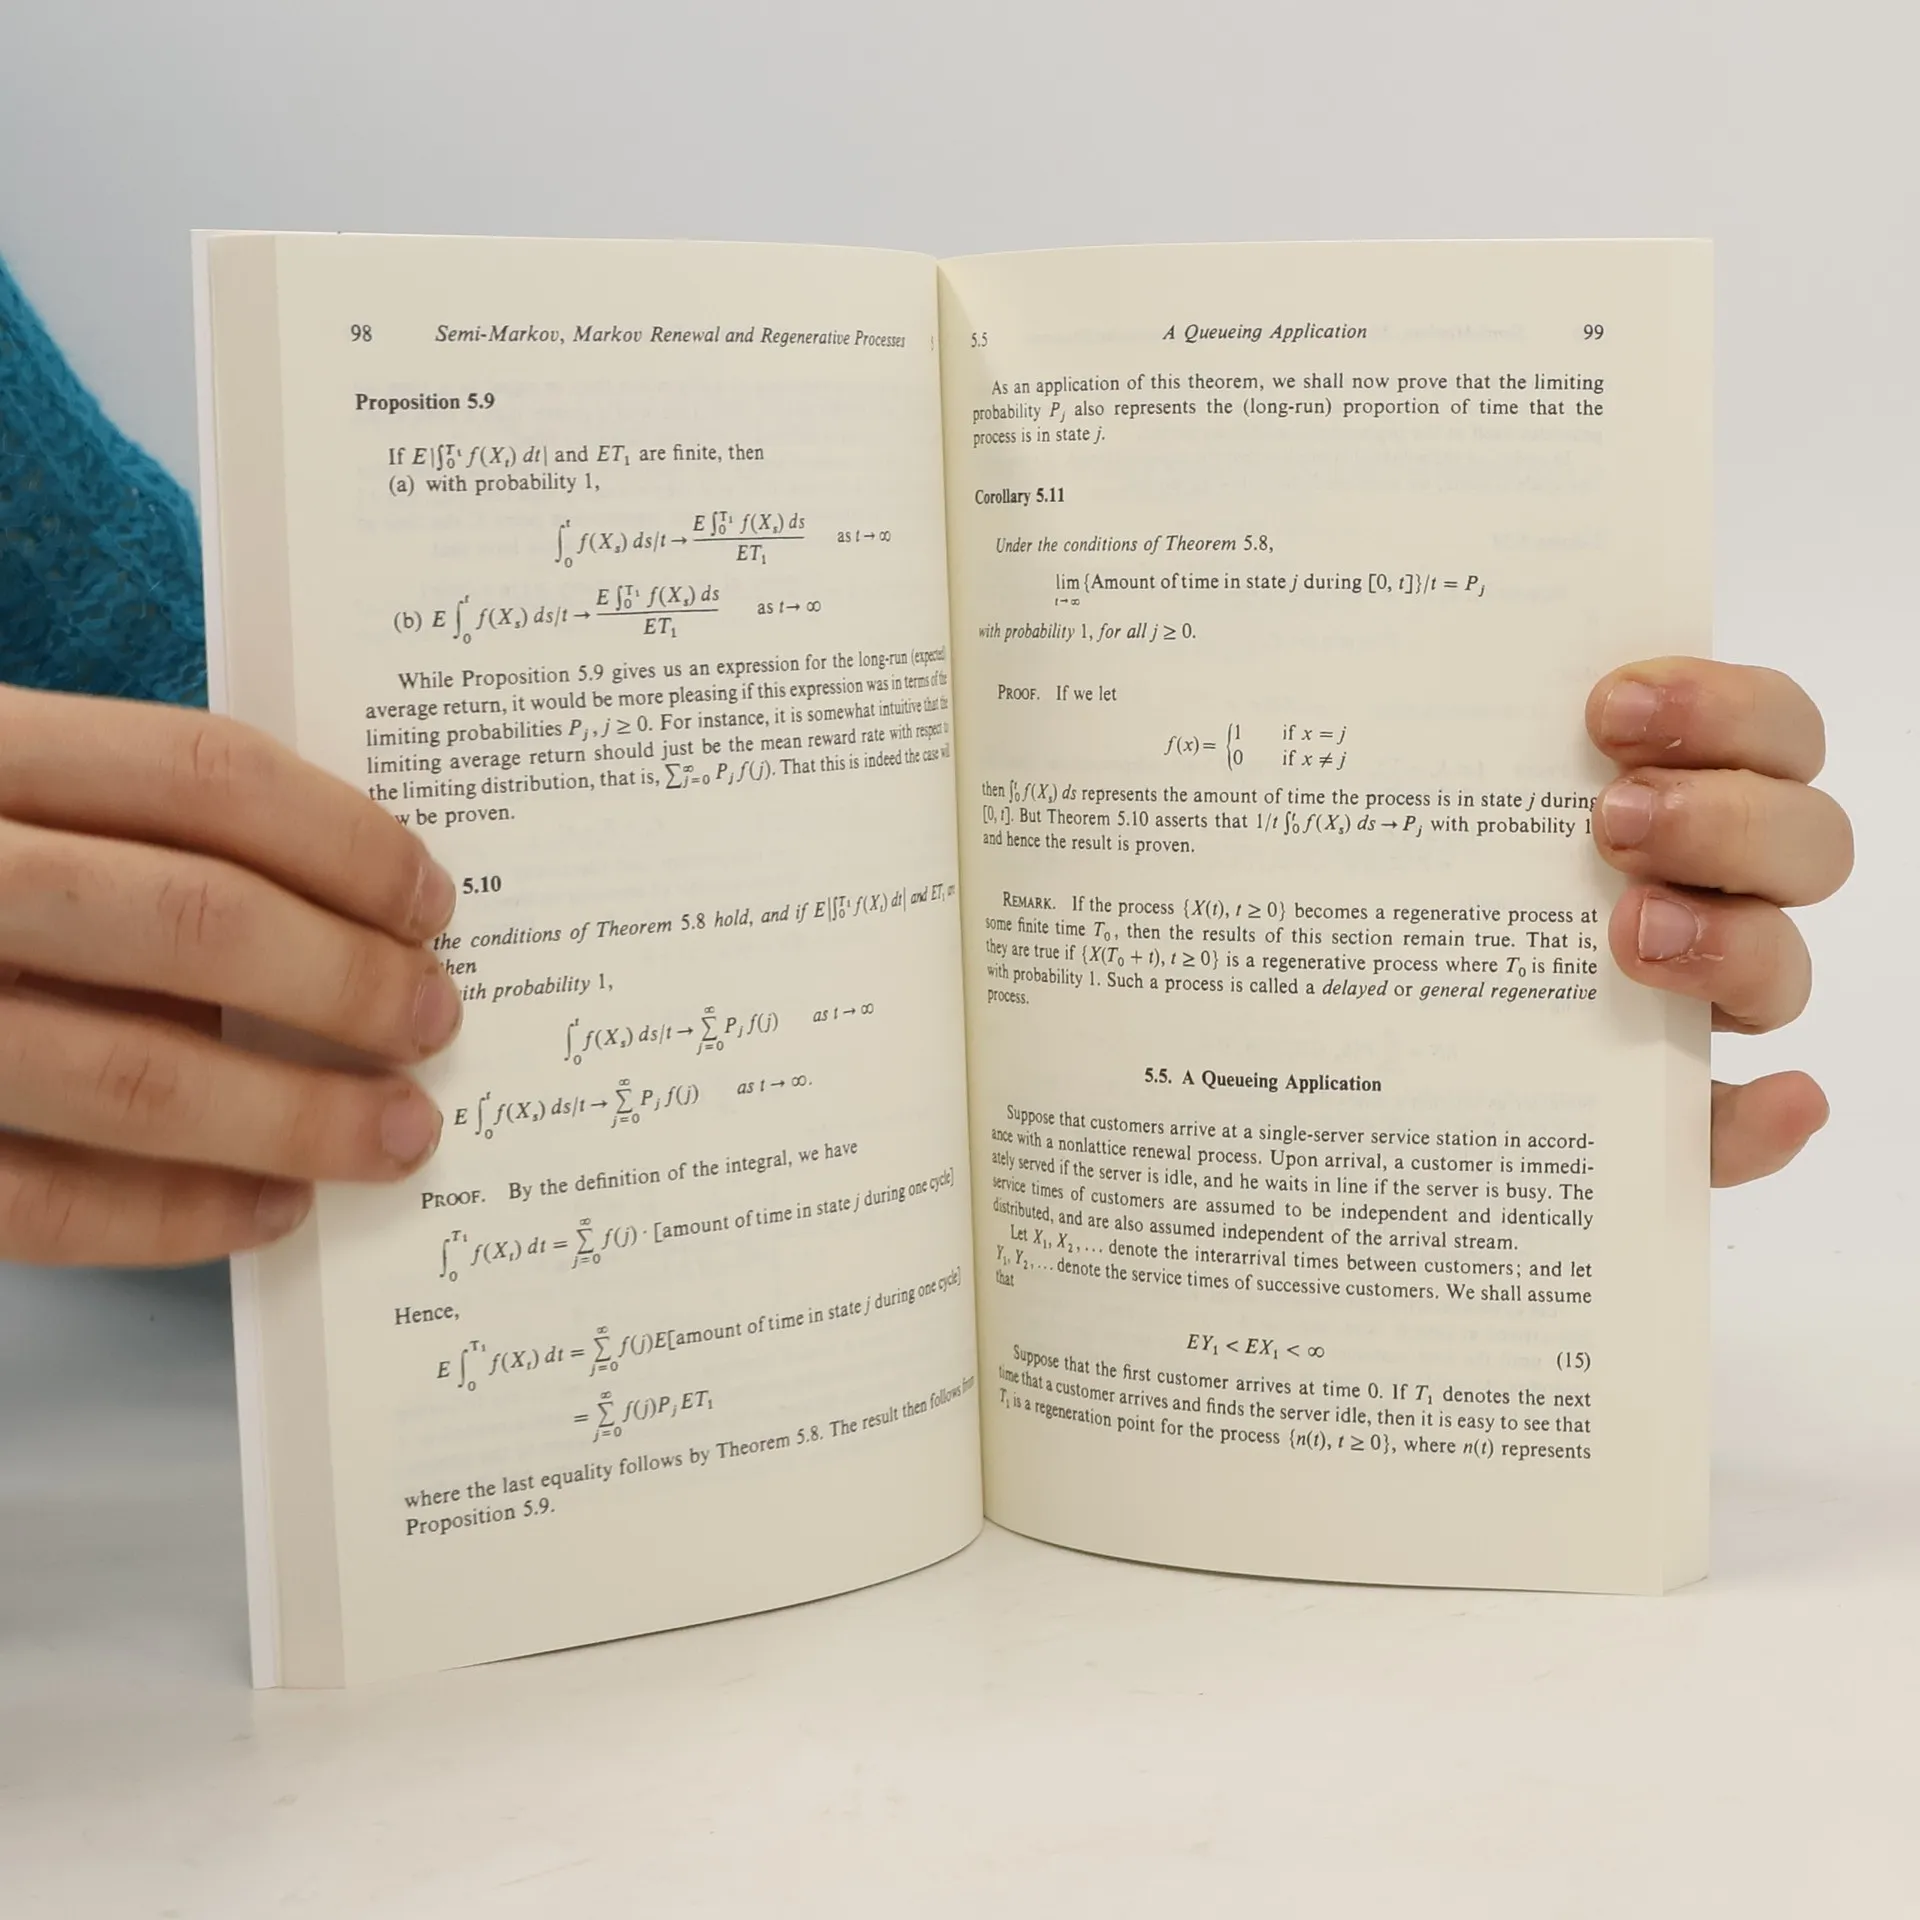 98 Semi-Markov, Markov Renewal and Regenerative Processes
Proposition 5.9
If E|∫₀^{T₁} f(X_t) dt| and ET₁ are finite, then
(a) with probability 1,
∫₀^t f(X_s) ds/t → E ∫₀^{T₁} f(X_s) ds / ET₁ as t → ∞
(b) E ∫₀^t f(X_s) ds/t → E ∫₀^{T₁} f(X_s) ds / ET₁ as t → ∞
While Proposition 5.9 gives us an expression for the long-run (expected)
average return, it would be more pleasing if this expression was in terms of the
limiting probabilities P_j, j ≥ 0. For instance, it is somewhat intuitive that the
limiting average return should just be the mean reward rate with respect to
the limiting distribution, that is, ∑_{j=0}^∞ P_j f(j). That this is indeed the case will
be proven.
5.10
the conditions of Theorem 5.8 hold, and if E|∫₀^{T₁} f(X_t) dt| and ET₁ are
hen
ith probability 1,
∫₀^t f(X_s) ds/t → ∑_{j=0}^∞ P_j f(j) as t → ∞
) E ∫₀^t f(X_s) ds/t → ∑_{j=0}^∞ P_j f(j) as t → ∞.
PROOF. By the definition of the integral, we have
∫₀^{T₁} f(X_t) dt = ∑_{j=0}^∞ f(j) · [amount of time in state j during one cycle]
Hence,
E ∫₀^{T₁} f(X_t) dt = ∑_{j=0}^∞ f(j)E[amount of time in state j during one cycle]
= ∑_{j=0}^∞ f(j)P_j ET₁
where the last equality follows by Theorem 5.8. The result then follows from
Proposition 5.9.
5.5 A Queueing Application 99
As an application of this theorem, we shall now prove that the limiting
probability P_j also represents the (long-run) proportion of time that the
process is in state j.
Corollary 5.11
Under the conditions of Theorem 5.8,
lim_{t→∞} {Amount of time in state j during [0, t]}/t = P_j
with probability 1, for all j ≥ 0.
PROOF. If we let
f(x) = {1 if x = j
{0 if x ≠ j
then ∫₀^t f(X_s) ds represents the amount of time the process is in state j during
[0, t]. But Theorem 5.10 asserts that 1/t ∫₀^t f(X_s) ds → P_j with probability 1
and hence the result is proven.
REMARK. If the process {X(t), t ≥ 0} becomes a regenerative process at
some finite time T₀, then the results of this section remain true. That is,
they are true if {X(T₀ + t), t ≥ 0} is a regenerative process where T₀ is finite
with probability 1. Such a process is called a delayed or general regenerative
process.
5.5. A Queueing Application
Suppose that customers arrive at a single-server service station in accord-
ance with a nonlattice renewal process. Upon arrival, a customer is immedi-
ately served if the server is idle, and he waits in line if the server is busy. The
service times of customers are assumed to be independent and identically
distributed, and are also assumed independent of the arrival stream.
Let X₁, X₂, ... denote the interarrival times between customers; and let
Y₁, Y₂, ... denote the service times of successive customers. We shall assume
that
EY₁ < EX₁ < ∞ (15)
Suppose that the first customer arrives at time 0. If T₁ denotes the next
time that a customer arrives and finds the server idle, then it is easy to see that
T₁ is a regeneration point for the process {n(t), t ≥ 0}, where n(t) represents